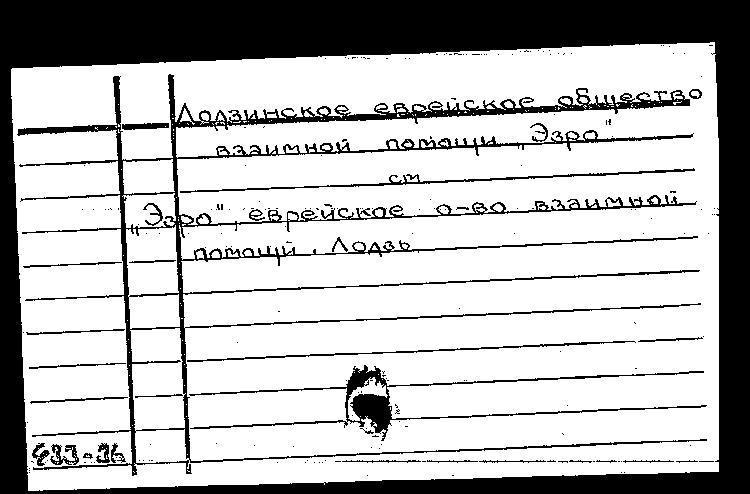 Лодзинское еврейское общество
взаимной помощи „Эзро"
см
„Эзро", еврейское о-во взаимной
помощи. Лодзь